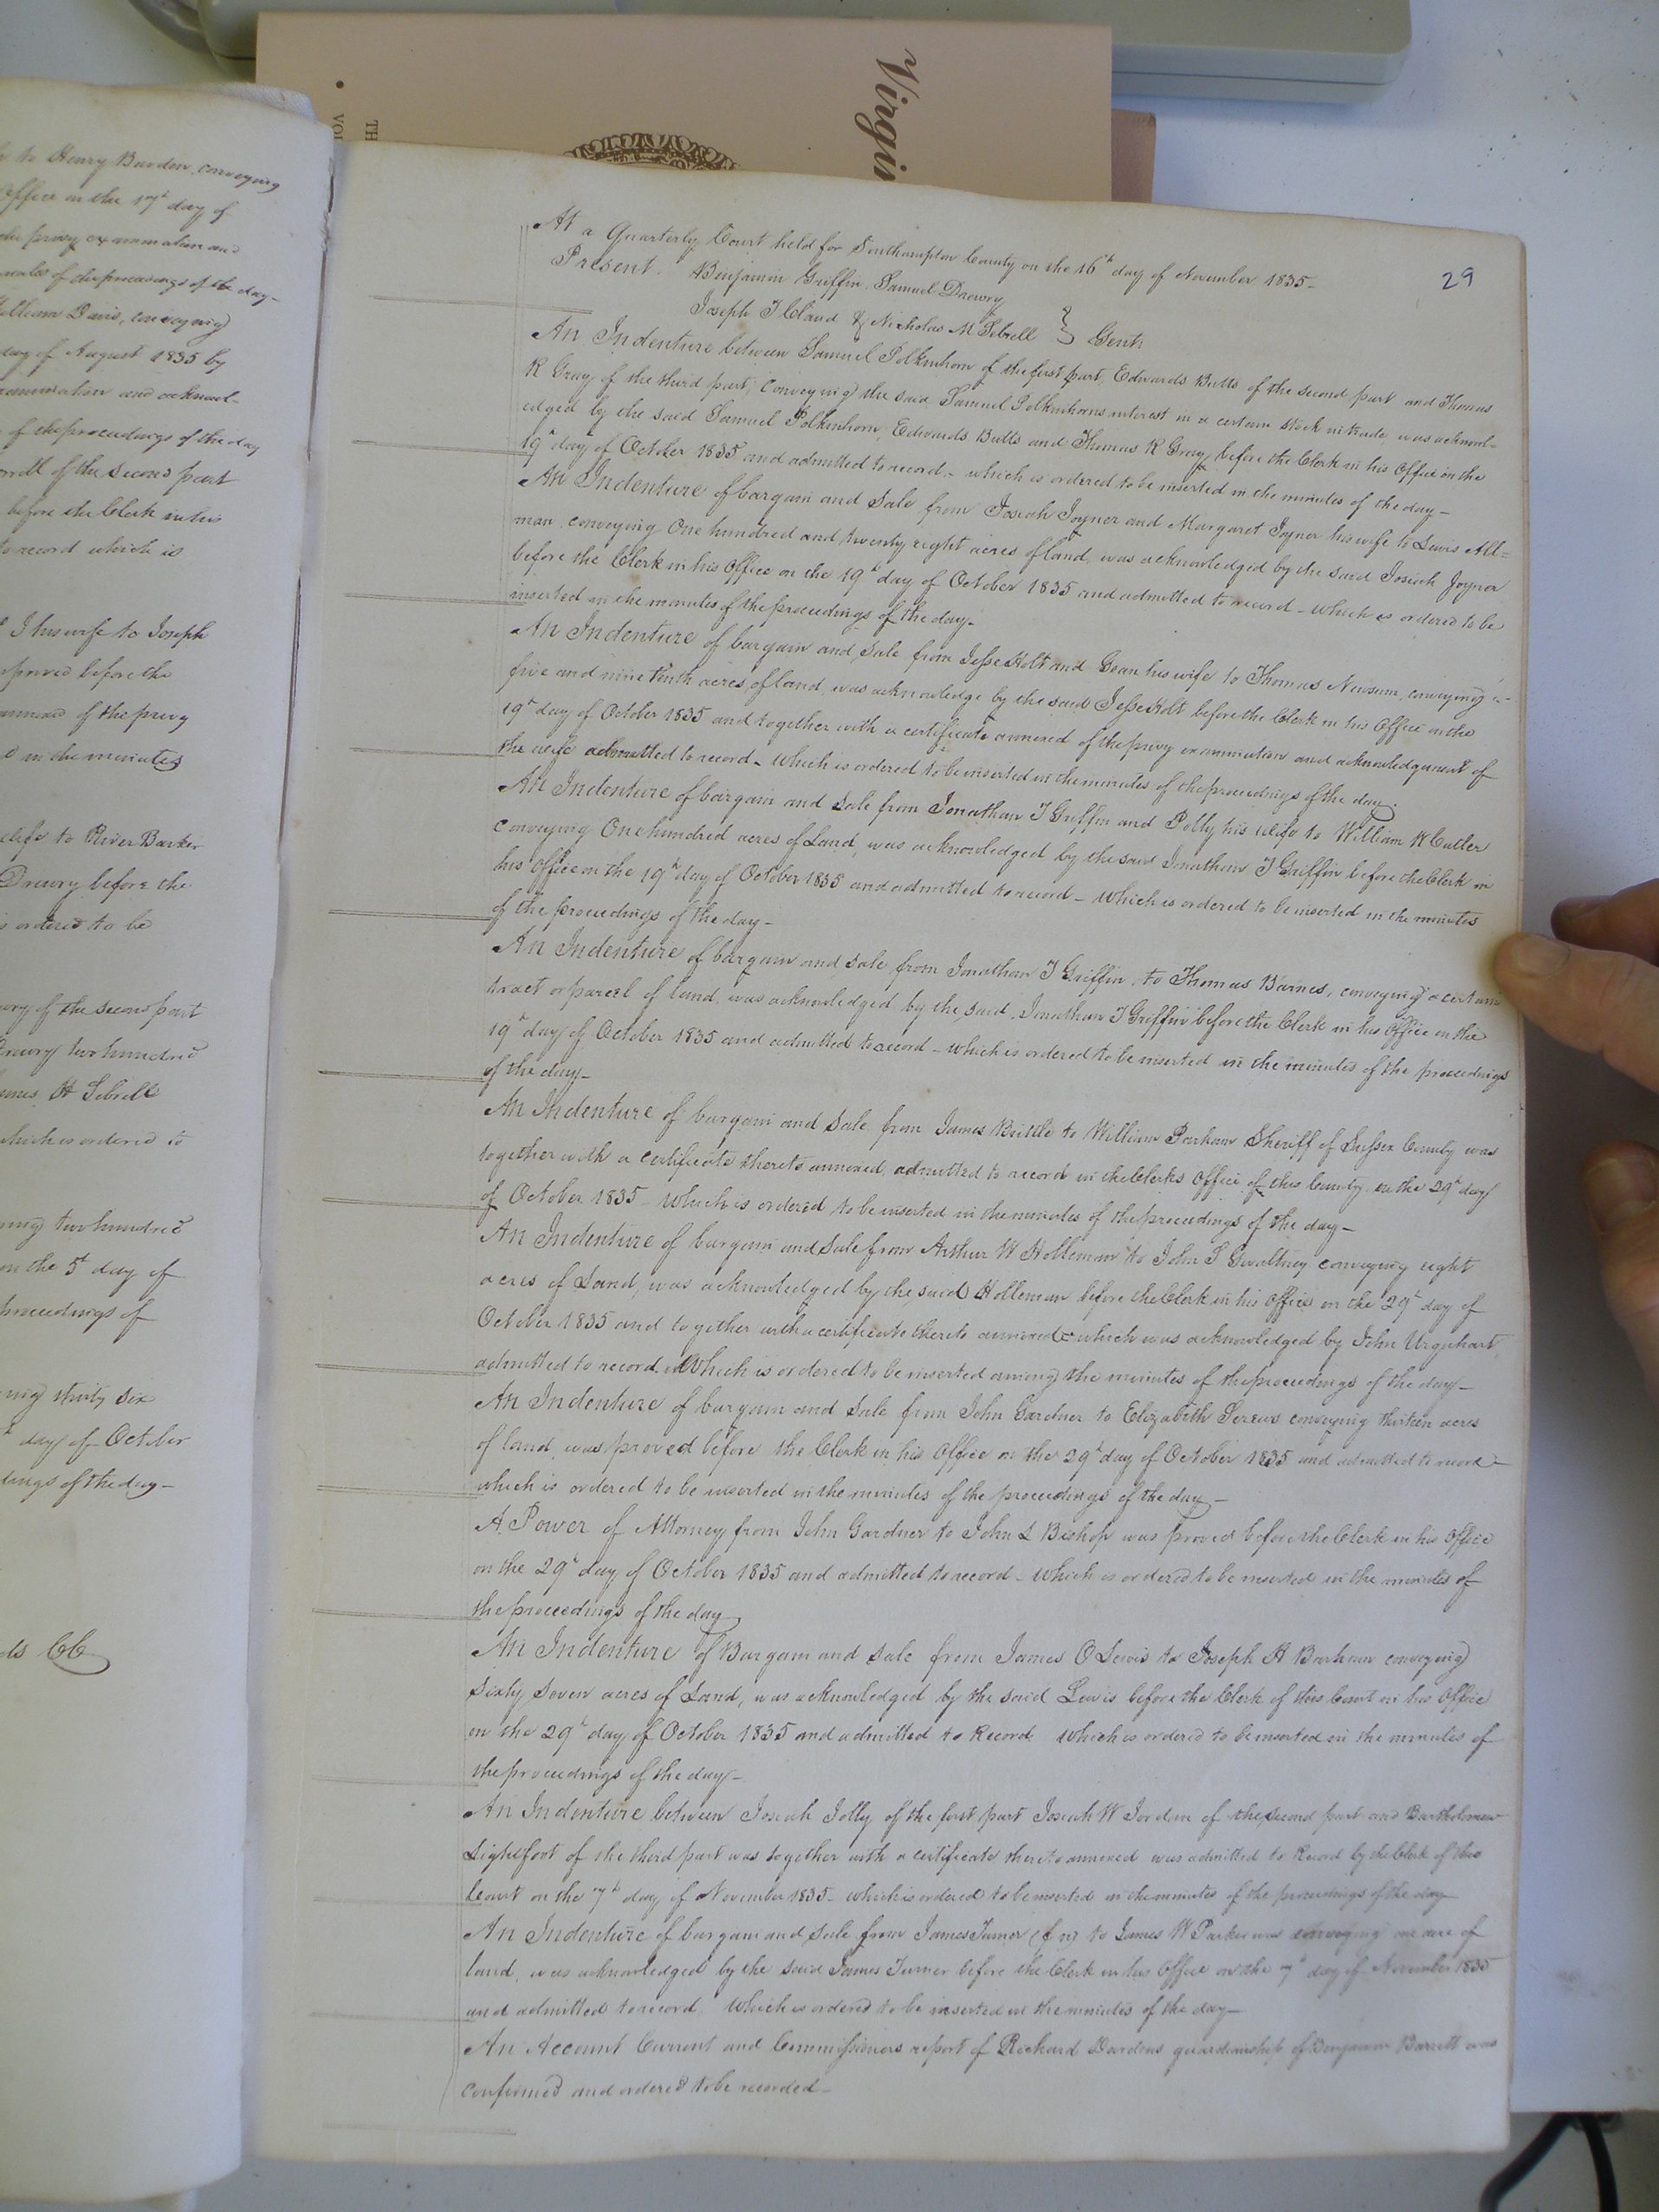 Virgi
TH
VOL
to Henry Barden, conveying
office on the 17th day of
the privy examination and
minutes of the proceedings of the day-
William Davis, conveying
day of August 1835 by
examination and acknowl-
of the proceedings of the day
of the second part
before the Clerk in his
to record which is
I his wife to Joseph
proved before the
annexed of the privy
in the minutes
wife to River Barker
Drewry before the
is ordered to be
of the second part
Drewry two hundred
James H Sebrell
which is ordered to
two hundred
on the 5th day of
proceedings of
thirty six
day of October
of the day-
CC
29
At a Quarterly Court held for Southampton County on the 16th day of November 1835-
Present. Benjamin Griffin, Samuel Drewry
Joseph T Claud & Nicholas M Sebrell } Gent:
An Indenture between Samuel Polkinhorn of the first part, Edwards Butts of the second part and Thomas
R Gray of the third part, conveying the said Samuel Polkinhorns interest in a certain stock in trade, was acknowl-
edged by the said Samuel Polkinhorn, Edwards Butts and Thomas R Gray, before the Clerk in his Office on the
19th day of October 1835 and admitted to record - which is ordered to be inserted in the minutes of the day-
An Indenture of bargain and Sale from Josiah Joyner and Margaret Joyner his wife to Lewis All=
man, conveying One hundred and twenty eight acres of land, was acknowledged by the said Josiah Joyner
before the Clerk in his Office on the 19th day of October 1835 and admitted to record - which is ordered to be
inserted in the minutes of the proceedings of the day-
An Indenture of bargain and Sale from Jesse Holt and his wife to Thomas Newsum, conveying
five and nine tenth acres of land, was acknowledge by the said Jesse Holt before the Clerk in his Office on the
19th day of October 1835 and together with a certificate annexed of the privy examination and acknowledgment of
the wife admitted to record - which is ordered to be inserted in the minutes of the proceedings of the day.
An Indenture of bargain and Sale from Jonathan T Griffin and Polly his wife to William W Cutler
conveying One hundred acres of Land, was acknowledged by the said Jonathan T Griffin before the Clerk in
his Office on the 19th day of October 1835 and admitted to record - which is ordered to be inserted in the minutes
of the proceedings of the day-
An Indenture of bargain and Sale from Jonathan T Griffin, to Thomas Barnes, conveying a certain
tract or parcel of land, was acknowledged by the said Jonathan T Griffin before the Clerk in his Office on the
19th day of October 1835 and admitted to record - which is ordered to be inserted in the minutes of the proceedings
of the day-
An Indenture of bargain and Sale from James Brittle to William Parham Sheriff of Sussex County was
together with a certificate thereto annexed, admitted to record in the Clerks Office of this County on the 29th day
of October 1835 - which is ordered to be inserted in the minutes of the proceedings of the day-
An Indenture of bargain and Sale from Arthur W Holleman to John S Gwaltney conveying eight
acres of Land, was acknowledged by the said Holleman before the Clerk in his Office on the 29th day of
October 1835 and together with a certificate thereto annexed which was acknowledged by John Urquhart,
admitted to record. Which is ordered to be inserted among the minutes of the proceedings of the day-
An Indenture of bargain and Sale from John Gardner to Elizabeth conveying thirteen acres
of land was proved before the Clerk in his Office on the 29th day of October 1835 and admitted to record-
which is ordered to be inserted in the minutes of the proceedings of the day-
A Power of Attorney from John Gardner to John L Bishop was proved before the Clerk in his Office
on the 29th day of October 1835 and admitted to record - which is ordered to be inserted in the minutes of
the proceedings of the day
An Indenture of Bargain and Sale from James O Lewis to Joseph H Barham conveying
Sixty Seven acres of Land, was acknowledged by the said Lewis before the Clerk of this Court in his Office
on the 29th day of October 1835 and admitted to Record which is ordered to be inserted in the minutes of
the proceedings of the day-
An Indenture between Josiah Jolly of the first part Josiah W Jorden of the second part and Bartholomew
Lightfoot of the third part was together with a certificate thereto annexed was admitted to Record by the Clerk of this
Court on the 7th day of November 1835 - which is ordered to be inserted in the minutes of the proceedings of the day
An Indenture of bargain and Sale from James Turner (f n) to James W Parker was conveying one acre of
land, was acknowledged by the said James Turner before the Clerk in his Office on the 7th day of November 1835
and admitted to record. Which is ordered to be inserted in the minutes of the day-
An Account Current and Commissioners report of Richard Dardens guardianship of Benjamin Barrett was
confirmed and ordered to be recorded-